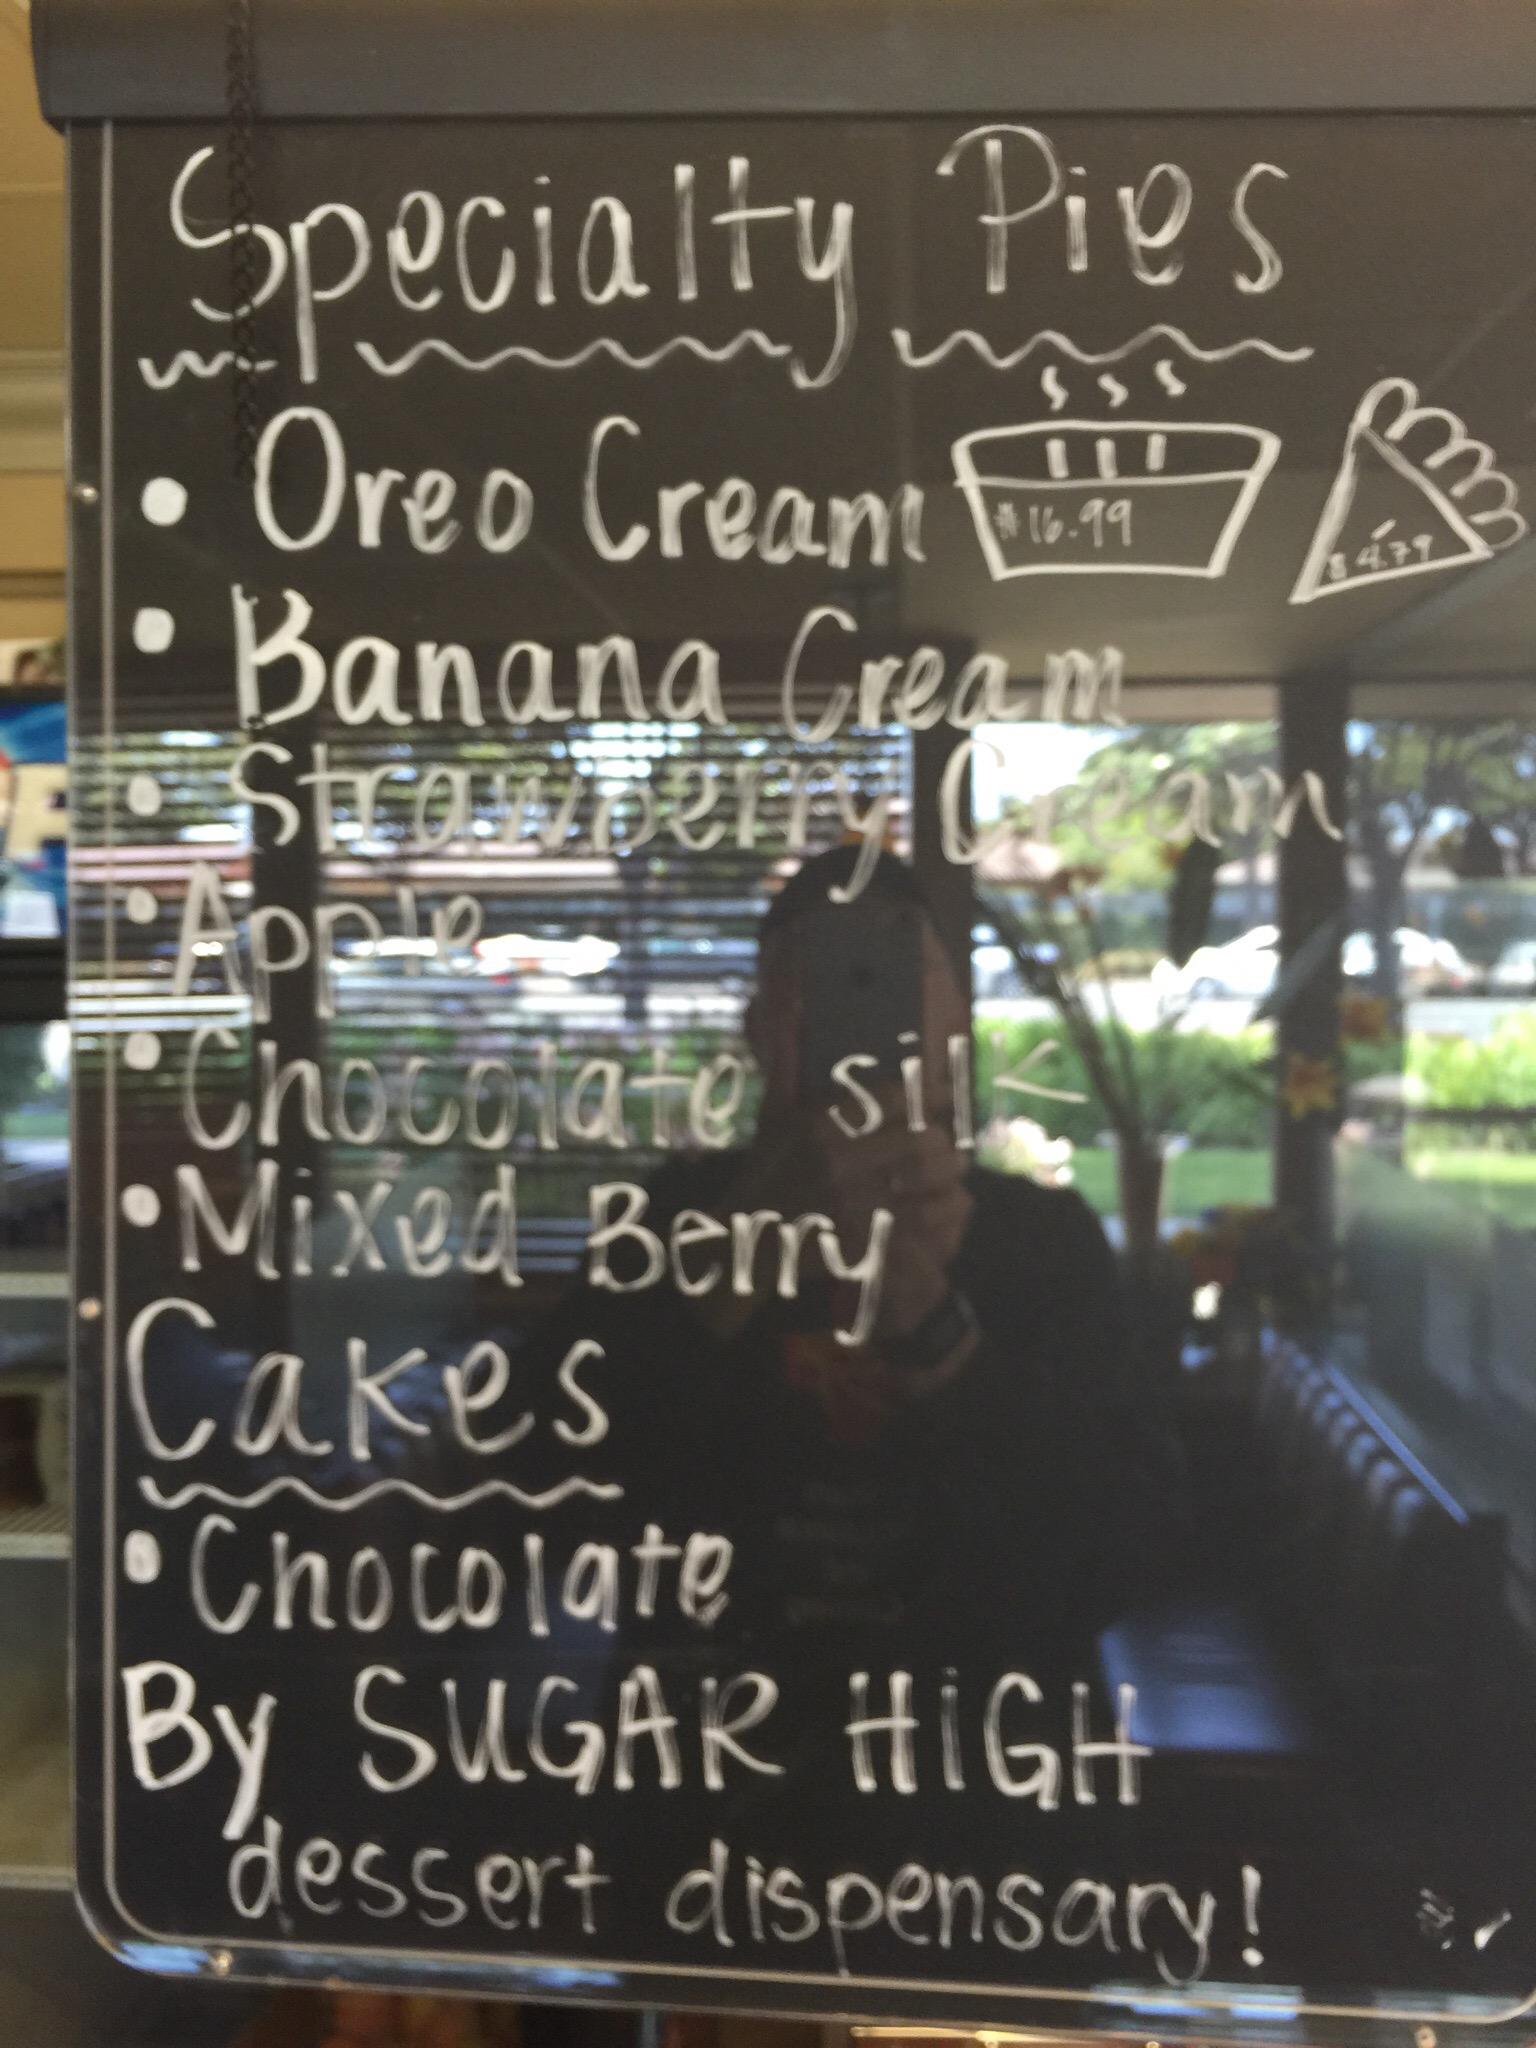 Specialty Pies
• Oreo Cream
$16.99
$4.79
• Banana Cream
• Strawberry Cream
• Apple
• Chocolate silk
• Mixed Berry
Cakes
• Chocolate
By SUGAR HiGH
dessert dispensary!